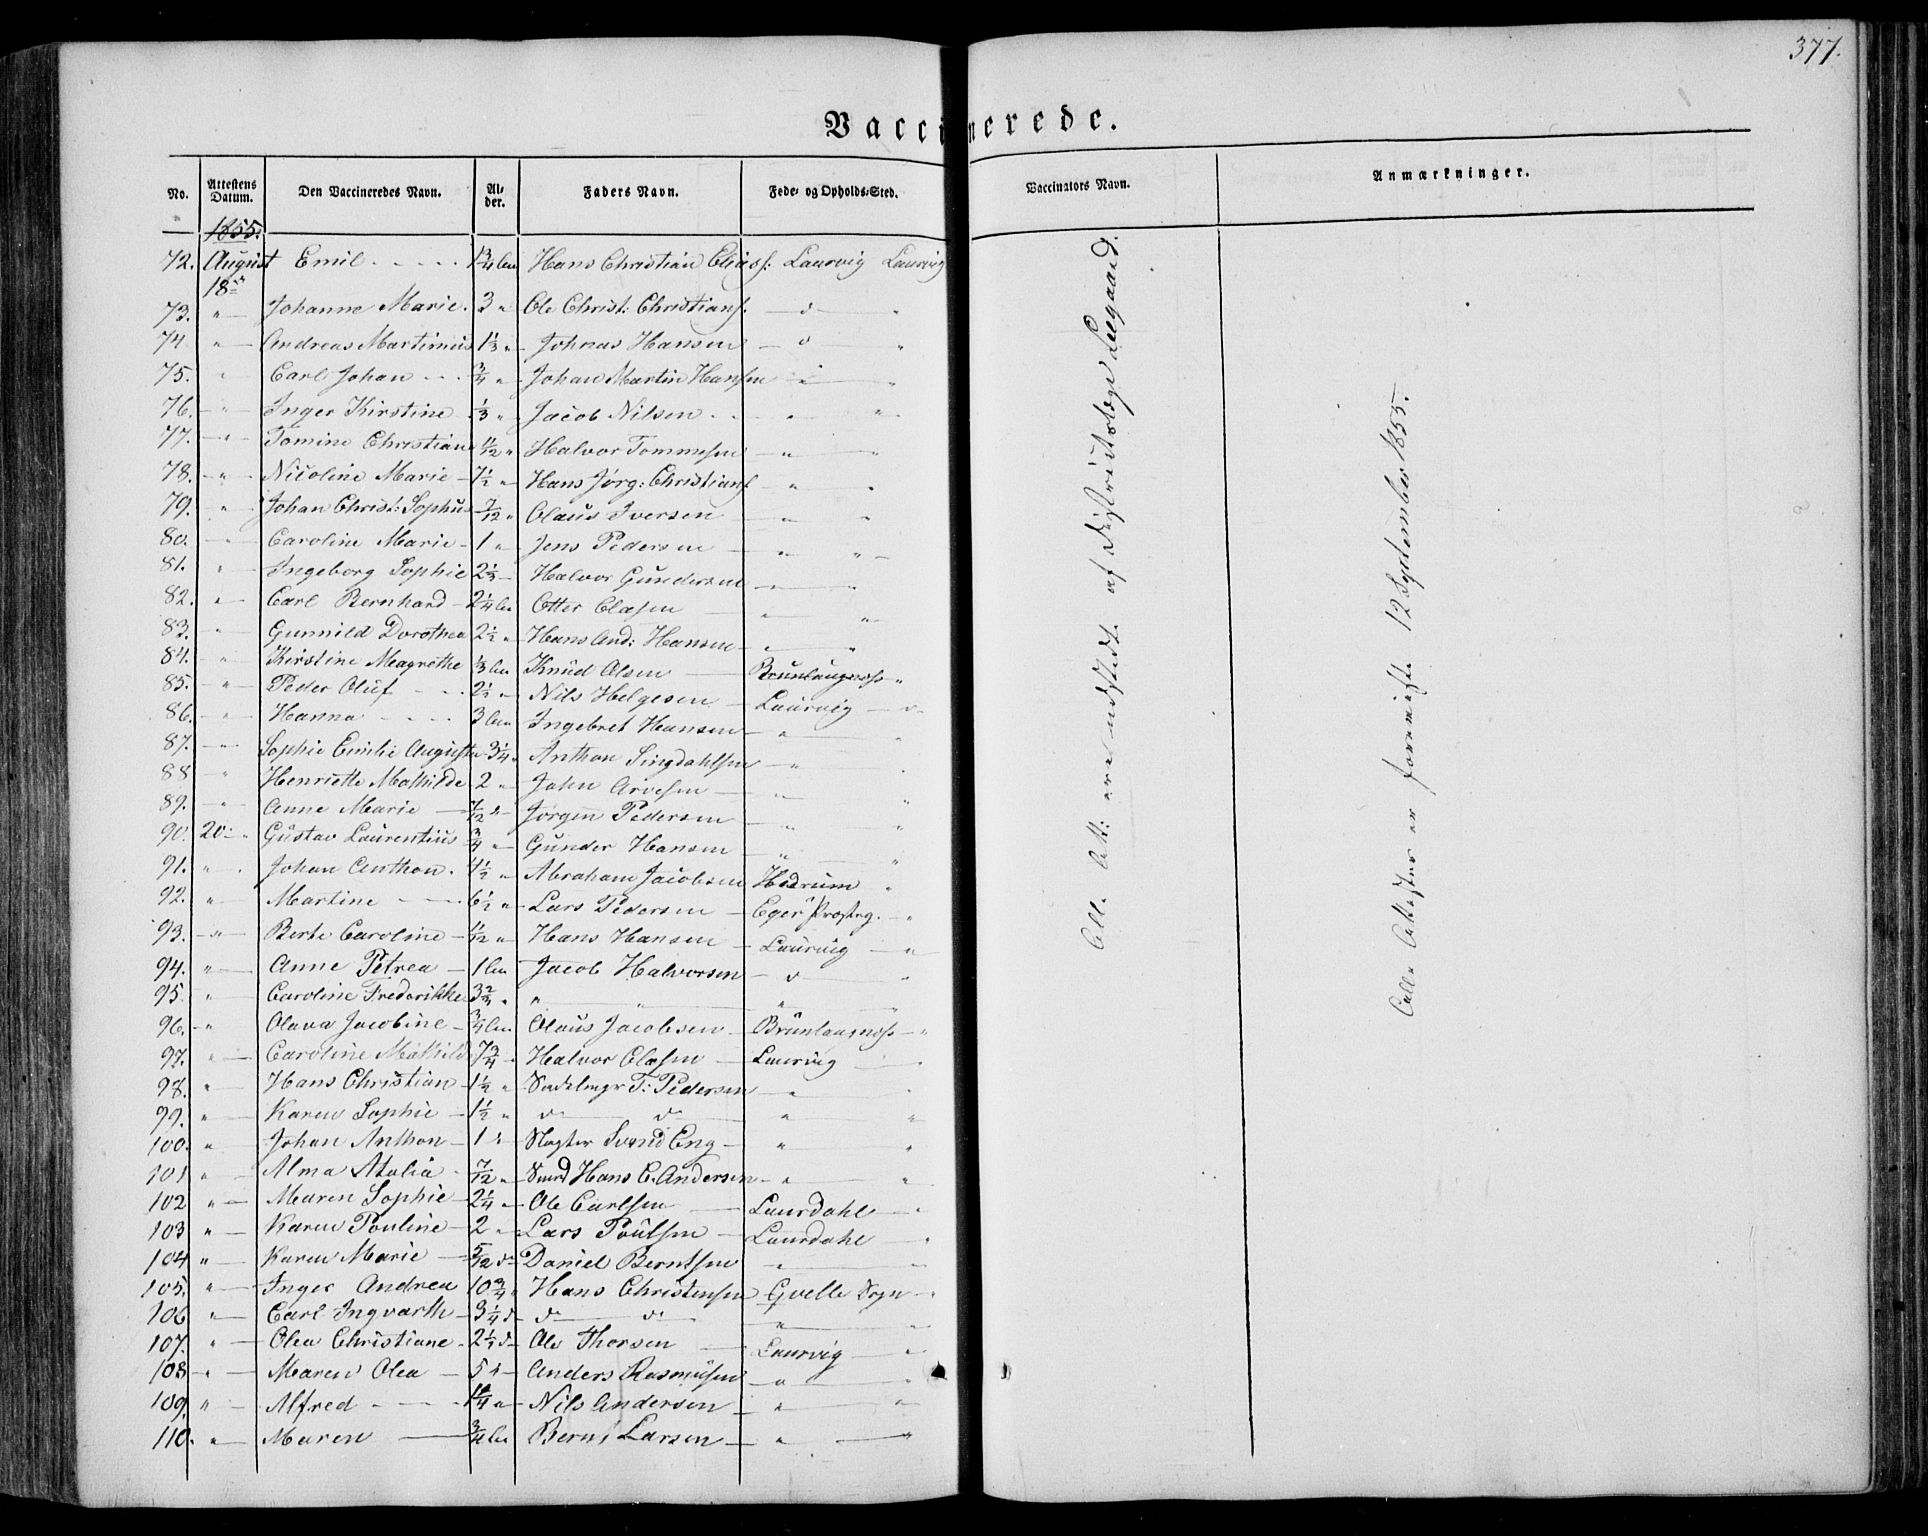 377.
Vaccinerede.
No. Attestens Datum. Den Vaccineredes Navn. Alder. Faders Navn. Føde- og Opholds-Sted. Vaccinators Navn. Anmærkninger.
1855.
72. August Emil 1 3/4 Hans Christian Eliass: Laurvig Laurvig
18
73. " Johanne Marie. 3 " Ole Christ: Christians. d "
74. " Andreas Martinius 1 1/3 " Johnas Hansen d "
75. " Carl Johan 3/4 " Johan Martin Hansen " "
76. " Inger Kirstine 1/3 " Jacob Nilsen " "
77. " Tomine Christiane 11/12 " Halvor Tommesen " "
78. " Nicoline Marie 7 1/2 " Hans Jørg: Christians " "
79. " Johan Christ: Sophus 7/12 " Olaus Iversen " "
80. " Caroline Marie 1 " Jens Pedersen " "
81. " Ingeborg Sophie 2 1/3 Halvor Gundersen " "
82. " Carl Bernhard 2 1/4 Otter Olasen " "
83. " Gunnild Dorothea 2 1/2 " Hans And: Hansen " "
84. " Kirstine Magrethe 1/3 Knud Olsen Brunlaugnæss "
85. " Peder Oluf 2 1/2 " Nils Helgesen Laurvig d
86. " Hanna 3 Ingebret Hansen " "
87. " Sophie Emilie Augusta 3 1/4 " Anthon Lingdahlsen "
88 " Henriette Mathilde 2 " John Arvesen " "
89. " Anne Marie 7/12 " Jørgen Pedersen " "
90. 20 " Gustav Laurentius 3/4 " Gunder Hansen " "
91. " Johan Anthon. 4 1/2 " Abraham Jacobsen Hedrum "
92. " Martine 6 1/2 " Lars Pedersen Eger Præsteg. "
93. " Berte Caroline 11/12 " Hans Hansen Laurvig "
94. " Anne Petrea 1 Jacob Halvorsen d "
95. " Caroline Frederikke 3 " " " " "
96. " Olava Jacobine 3/4 Olaus Jacobsen Brunlaugnæss "
97. " Caroline Mathild 7 3/4 Halvor Olasen Laurvig
98. " Hans Christian 1 1/2 " Sadelmgr T: Pedersen " "
99. " Karen Sophie 1 1/2 " d d " "
100. " Johan Anthon 1 " Slagter Svend Eng " "
101 " Alma Atalia 7/12 " Smed Hans C. Andersen " "
102 " Maren Sophie 2 1/4 " Ole Carlsen Laurdahl "
103 " Karen Pouline 2 " Lars Poulsen Laurdahl "
104 " Karen Marie 5/12 d Daniel Berntsen " "
105. " Inger Andrea 10 3/4 " Hans Christensen Qvelle Sogn "
106 " Carl Ingvarth 3 1/4 d d d " "
107. " Olea Christiane 2 1/2 d Ole Thorsen Laurvig "
108 " Maren Olea 5 " Anders Rasmussen " "
109. " Alfred 1 1/4 " Nils Andersen " "
110. " Maren 3/4 Bernt Larsen " "
Alle Att: ere udstedt af Distriktslæge Leegaard.
Alle Attester er foreviste 12 September 1855.